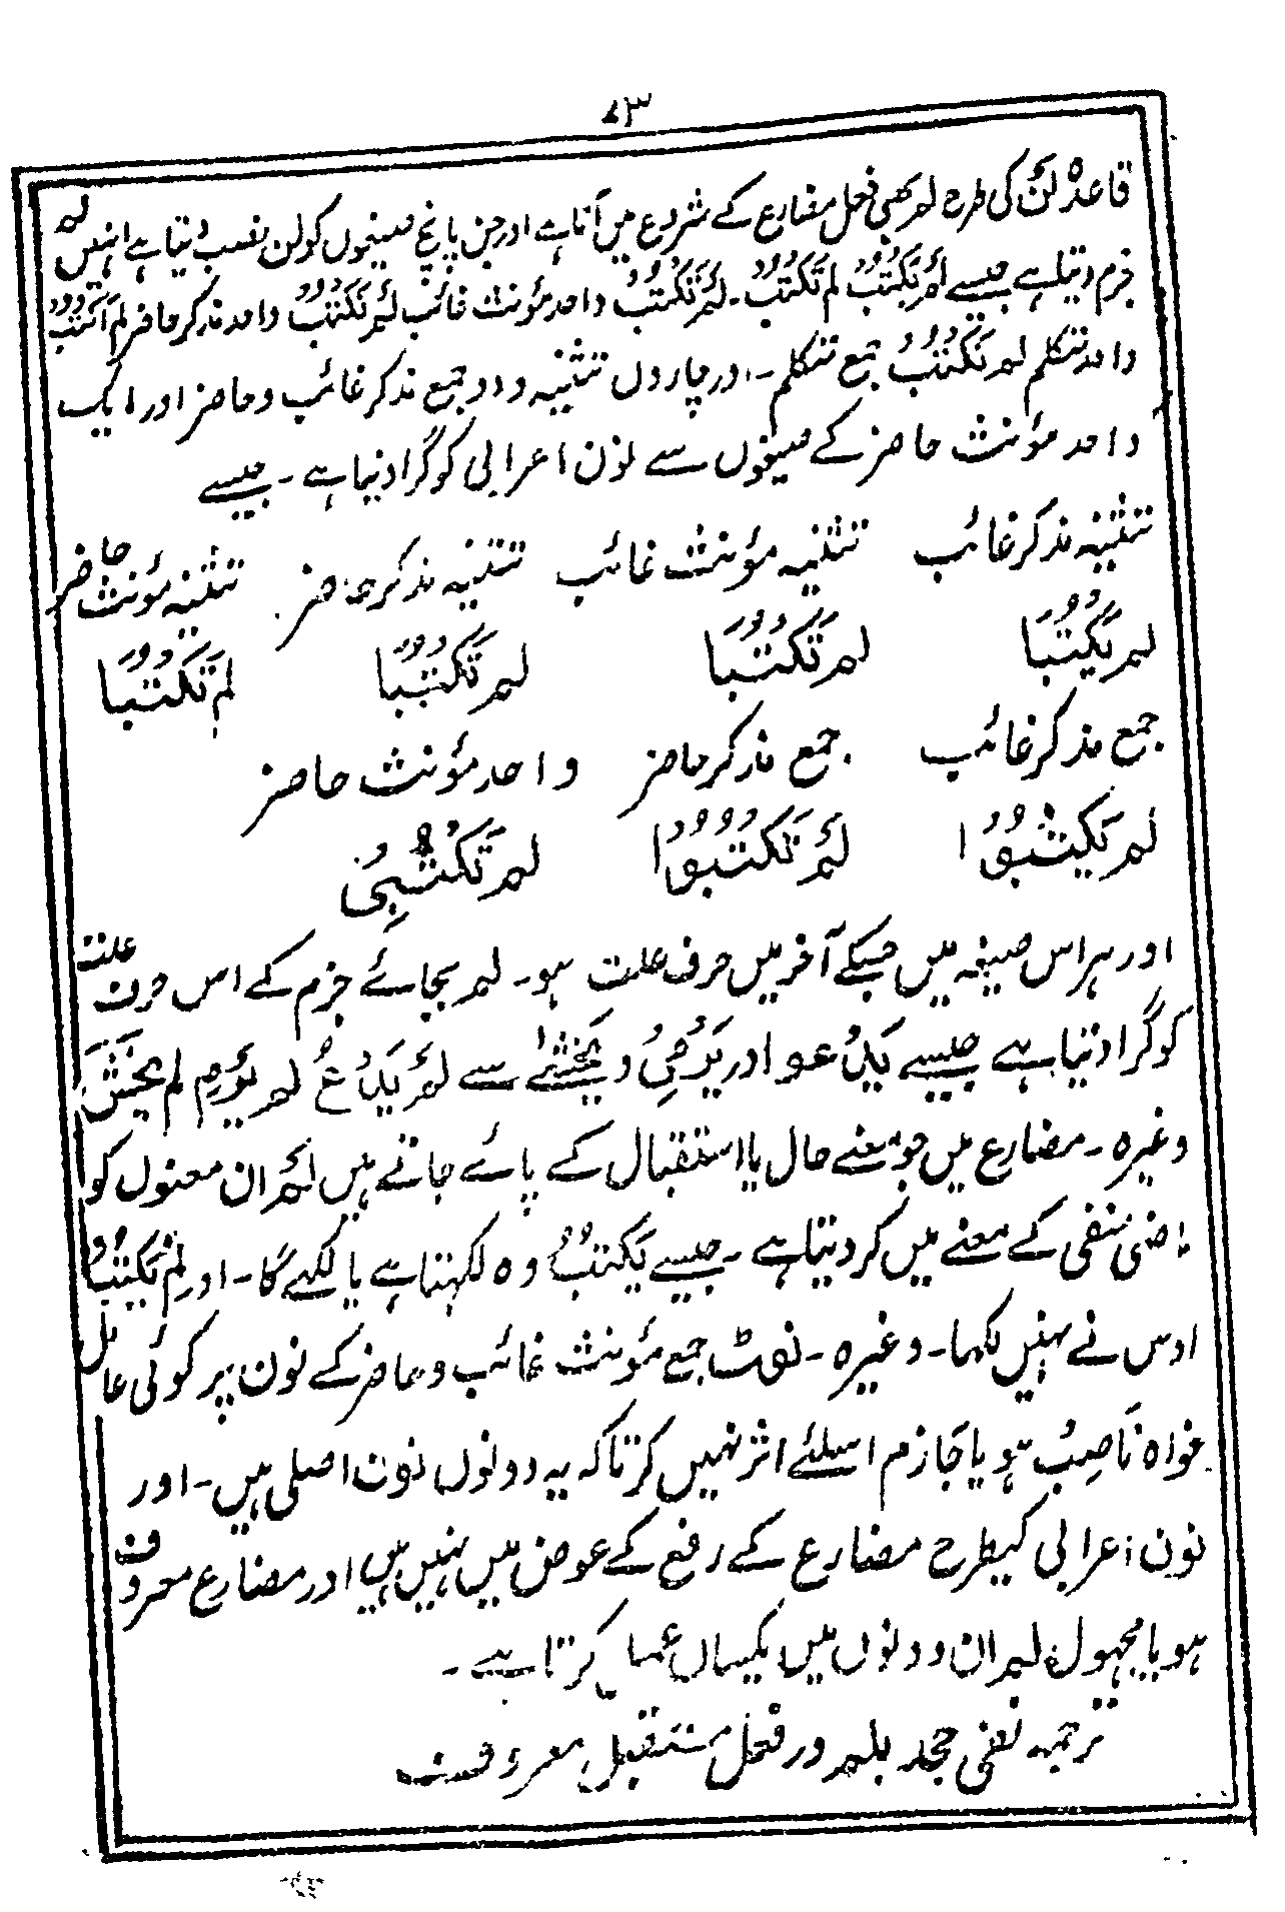 ۷۳
قاعدہ لَنْ کی طرح لم بھی فعل مضارع کے شروع میں آتا ہے اور جن پانچ صیغوں کو لن نصب دیتا ہے انہیں لم
جزم دیتا ہے جیسے لَمْ يَكْتُبْ لم تَكْتُبْ۔ لَمْ تَكْتُبْ واحد مؤنث غائب لَمْ تَكْتُبْ واحد مذکر حاضر لم اَكْتُبْ
واحد متکلم لم نَكْتُبْ جمع متکلم۔ اور چاروں تثنیہ و دو جمع مذکر غائب و حاضر اور ایک
واحد مؤنث حاضر کے صیغوں سے نون اعرابی کو گرا دیتا ہے۔ جیسے
تثنیہ مذکر غائب تثنیہ مؤنث غائب تثنیہ مذکر حاضر تثنیہ مؤنث حاضر
لم يَكْتُبَا لم تَكْتُبَا لم تَكْتُبَا لم تَكْتُبَا
جمع مذکر غائب جمع مذکر حاضر واحد مؤنث حاضر
لم يَكْتُبُوْا لَمْ تَكْتُبُوْا لم تَكْتُبِیْ
اور ہر اس صیغہ میں جسکے آخر میں حرف علت ہو۔ لم بجائے جزم کے اس حرف علت
کو گرا دیتا ہے جیسے يَدْعُو اور يَرْمِیْ و يَخْشٰے سے لَمْ يَدْعُ لم يَرْمِ لم يَخْشَ
وغیرہ۔ مضارع میں جو معنے حال یا استقبال کے پائے جاتے ہیں لَمْ ان معنوں کو
ماضی منفی کے معنے میں کر دیتا ہے۔ جیسے يَكْتُبُ وہ لکہتا ہے یا لکہے گا۔ اور لم يَكْتُبْ
اوس نے نہیں لکہا۔ وغیرہ۔ نوٹ جمع مؤنث غائب و حاضر کے نون پر کوئی عامل
خواہ نَاصِبْ ہو یا جَازِم اسلئے اثر نہیں کرتا کہ یہ دونوں نون اصلی ہیں۔ اور
نون اعرابی کیطرح مضارع کے رفع کے عوض میں نہیں ہیں اور مضارع معروف
ہو یا مجہول لم ان دونوں میں یکساں عمل کرتا ہے۔
ترجمہ نفی جحد بلم در فعل مستقبل معروف